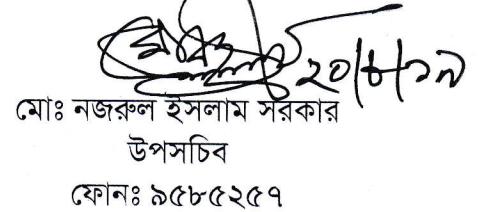 ২০/৮/১৯
মোঃ নজরুল ইসলাম সরকার
উপসচিব
ফোনঃ ৯৫৮৫২৫৭